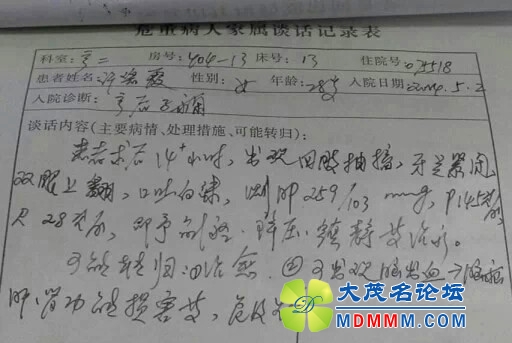 危重病人家属谈话记录表
科室:产二 房号:404-13 床号:13 住院号:
患者姓名: 性别:女 年龄:28岁 入院日期:2014.5.2
入院诊断:产后子痫
谈话内容(主要病情、处理措施、可能转归):
患者术后14+小时,出现四肢抽搐,牙关紧闭
双眼上翻,口吐白沫,测BP 259/103 mmHg,P145次/分,
R 28次/分,即予 降压、镇静等治疗。
可能转归:①治愈 ②可出现脑出血→脑疝
肝、肾功能损害等,危及
大茂名论坛
MDMMM.COM